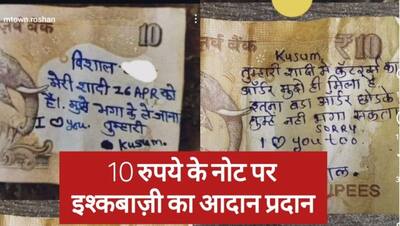 mtown.roshan
र्व बैंक
10
विशाल
मेरी शादी 26 APR को
है।. मुझे भगा के लेजाना
I ♡ you. तुम्हारी
Kusum.
₹10
Kusum.
तुम्हारी शादी मे कॅटरर्स का
आर्डर मुझे ही मिला है
इतना बडा आर्डर छोडके
तुम्हे नही भगा सकता
SORRY
I ♡ you too.
RUPEES
10 रुपये के नोट पर
इश्कबाज़ी का आदान प्रदान